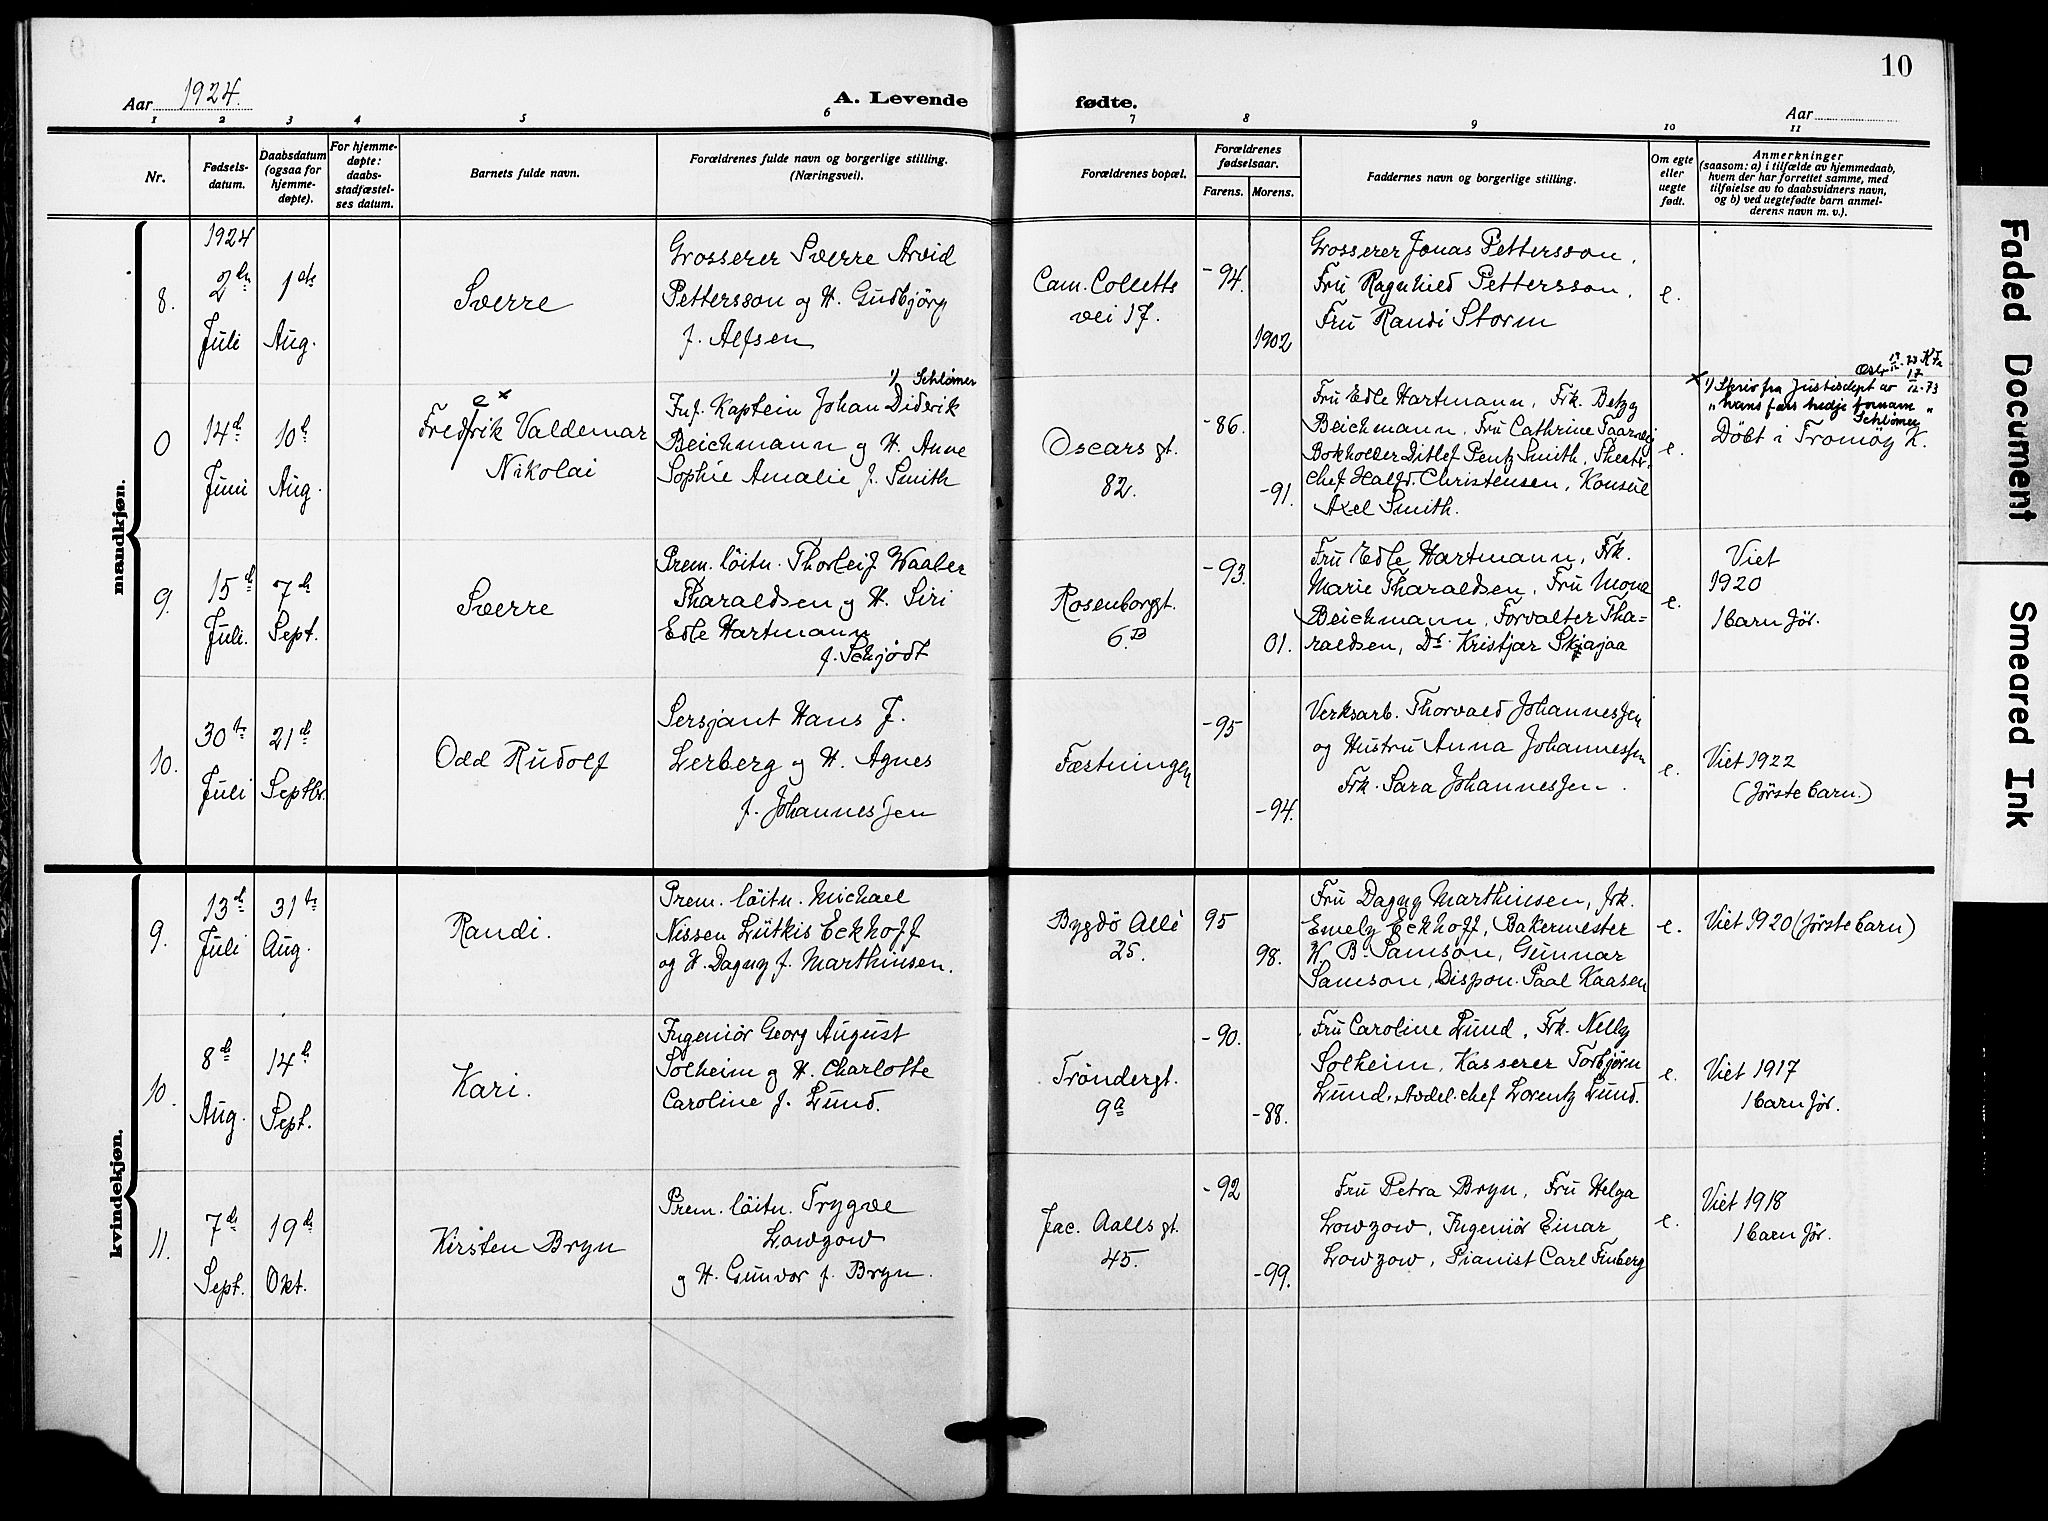 10
Aar 1924.
A. Levende fødte.
Aar
1 2 3 4 5 6 7 8 9 10 11
Nr.
Fødsels-
datum.
Daabsdatum
(ogsaa for
hjemme-
døpte).
For hjemme-
døpte:
daabs-
stadfæstel-
ses datum.
Barnets fulde navn.
Forældrenes fulde navn og borgerlige stilling.
(Næringsvei).
Forældrenes bopæl.
Forældrenes
fødselsaar.
Farens. Morens.
Faddernes navn og borgerlige stilling.
Om egte
eller
uegte
født.
Anmerkninger
(saasom: a) i tilfælde av hjemmedaab,
hvem der har forrettet samme, med
tilføielse av to daabsvidners navn,
og b) ved uegtefødte barn anmel-
derens navn m. v.).
mandkjøn.
8.
1924
2de
Juli
1ste
Aug.
Sverre
Grosserer Sverre Arvid
Pettersson og H. Gudbjörg
f. Alfsen
Cam. Colletts
vei 17.
-94.
1902
Grosserer Jonas Pettersson,
Fru Ragnhild Pettersson,
Fru Randi Storm
e.
0
14de
Juni
10de
Aug.
e x
Fredrik Valdemar
Nikolai
1) Schlømer
Inf. Kaptein Johan Diderik
Beichmann og H. Anne
Sophie Amalie f. Smith
Oscars gt.
82.
-86.
-91.
Fru Edle Hartmann, Frk. Betzy
Beichmann, Fru Cathrine Taarvig
Bokholder Ditlef Pentz Smith, Theatr.
chef Halfd. Christensen, Konsul
Axel Smith.
e.
x 1) Skriv fra Justisdept av 17/12-73
"hans fars tredje fornavn"
Schlømer
Döbt i Tromöy K.
9.
15de
Juli.
7de
Sept.
Sverre
Prem. löitn. Thorleif Waaler
Tharaldsen og H. Siri
Edle Hartmann
f. Schjödt
Rosenborggt.
6B
-93.
01.
Fru Edle Hartmann, Frk.
Marie Tharaldsen, Fru Mona
Beichmann, Forvalter Tha=
raldsen, Dr. Kristjar Skajaa
e.
Viet
1920
1 barn för.
10.
30te
Juli
21de
Septbr.
Odd Rudolf
Sersjant Hans F.
Lerberg og H. Agnes
f. Johannessen
Fæstningen
-95
-94.
Verksarb. Thorvald Johannessen
og Hustru Anna Johannessen
Frk. Sara Johannessen.
e.
Viet 1922
(förste barn.)
kvindekjøn.
9.
13de
Juli
31te
Aug.
Randi.
Prem. löitn. Michael
Nissen Lütkis Eckhoff
og H. Dagny f. Marthinsen.
Bygdö Allé
25.
95
98.
Fru Dagny Marthinsen, frk.
Emely Eckhoff, Bakermester
W. B. Samson, Gunnar
Samson, Dispon. Paal Kaasen
e.
Viet 1920 (förste barn)
10.
8de
Aug.
14de
Sept.
Kari.
Ingeniör Georg August
Solheim og H. Charlotte
Caroline f. Lund.
Tröndergt.
9a
-90.
-88.
Fru Caroline Lund, Frk. Nelly
Solheim, Kasserer Torbjörn
Lund, Avdel. chef Lorentz Lund.
e.
Viet 1917
1 barn för.
11.
7de
Sept.
19de
Okt.
Kirsten Bryn
Prem. löitn. Trygve
Lowzow
og H. Gunvor f. Bryn.
Jac. Aalls gt.
45.
-92
-99.
Fru Petra Bryn, Fru Helga
Lowzow, Ingeniör Einar
Lowzow, Pianist Carl Finberg
e.
Viet 1918
1 barn för.
Faded Document
Smeared Ink